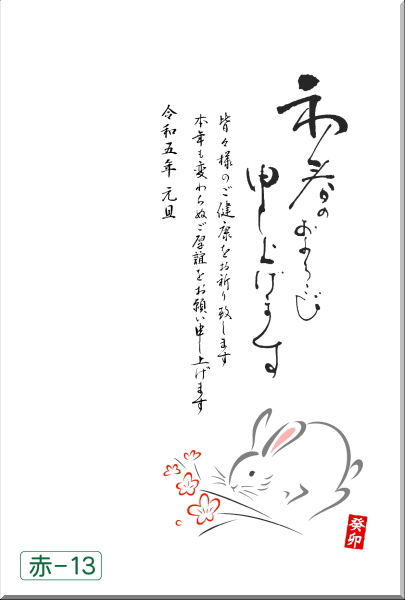 初春のおよろこび
申し上げます
皆々様のご健康をお祈り致します
本年も変わらぬご厚誼をお願い申し上げます
令和五年 元旦
癸卯
赤-13